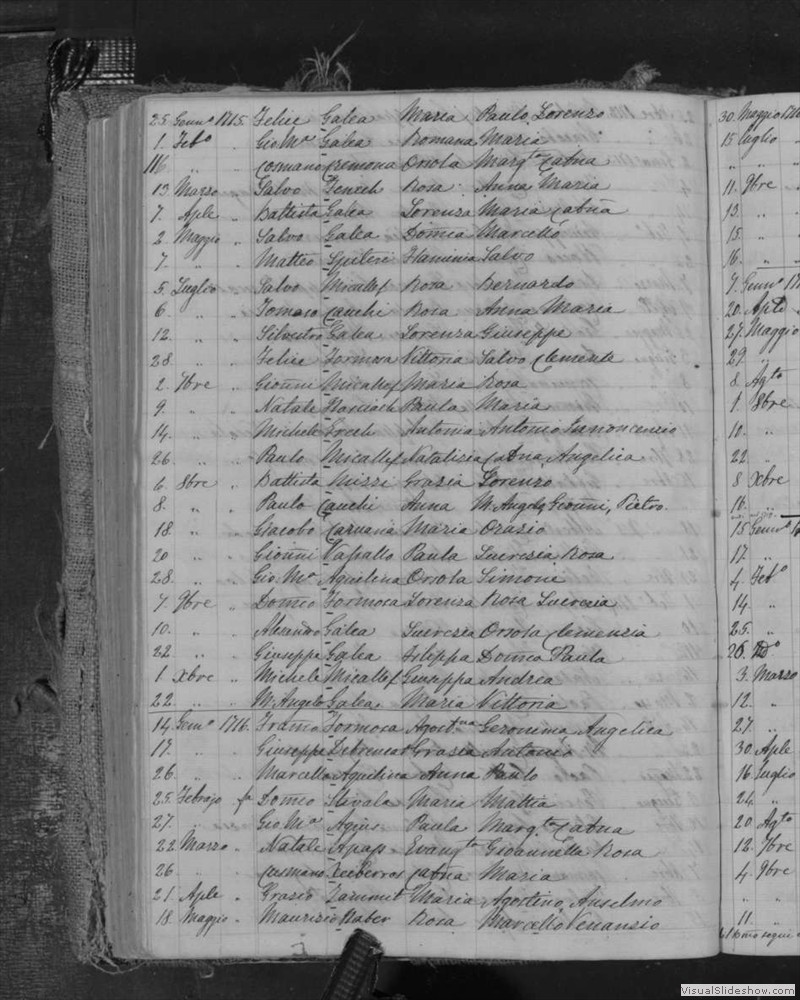 25. Genn.o 1715. Felice Galea Maria Paulo Lorenzo
1. Feb.o „ Gio M.a Galea Romana Maria
16 „ „ Cosmano Cremona Orsola Marg.ta Catna
13 Marzo „ Salvo Fenech Rosa Anna Maria
7. Aple „ Battista Galea Lorenza Maria Catna
2. Maggio „ Salvo Galea Domca Marcello
7. „ „ Matteo Spiteri Flaminia Salvo
5. Luglio „ Salvo Micallef Rosa Bernardo
6. „ „ Tomaso Cauchi Rosa Anna Maria
12. „ „ Silvestro Galea Lorenza Giuseppe
28. „ „ Felice Formosa Vittoria Salvo Clemente
2. 7bre „ Gionni Micallef Maria Rosa
9. „ „ Natale Paula Maria
14. „ „ Michele Antonia Antonio Innoncenzio
26 „ „ Paulo Micallef Natalizia Catna Angelica
6. 8bre „ Battista Mizzi Grazia Lorenzo
8. „ „ Paulo Cauchi Anna M. Angelo Gionni, Pietro.
18. „ „ Giacobo Caruana Maria Orazio
20 „ „ Gionni Vassallo Paula Lucrezia Rosa
28. „ „ Gio. M.a Aquilina Orsola Simone
7. 9bre „ Domco Formosa Lorenza Rosa Lucrezia
10. „ „ Alesandro Galea Lucrezia Orsola Clemenzia
22 „ „ Giuseppe Galea Domca Paula
1. Xbre „ Michele Micallef Giuseppa Andrea
22. „ „ M. Angelo Galea Maria Vittoria
14. Genn.o 1716. Formosa Agost.na Geronima Angelica
17. „ „ Giuseppe Grazia Antonio
26. „ „ Marcello Aquilina Anna Paulo
25. Febrajo Domco Maria Mattia
27. „ Gio. M.a Agius Paula Marg.ta Catna
22. Marzo „ Natale Apap Evang.ta Gioannella Rosa
26 „ Cusmano Catna Maria
21. Aple „ Grazio Zammit Maria Agostino Anselmo
18. Maggio „ Maurizio Rosa Marcello Venansio
30. Maggio
15 luglio
„ „
11. 9bre
13. „
15. „
16. „
7. Genn.o
20. Aple
27. Maggio
29 „
8. Ag.to
1. 8bre
10. „
22. „
8 Xbre
16. „
15 Genn.o
17. „
4. Feb.o
14. „
25. „
26.
3. Marzo
12. „
27. „
30 Aple
16 luglio
24. „
20 Ag.to
12. 7bre
4. 9bre
„ „
11. „
VisualSlideshow.com